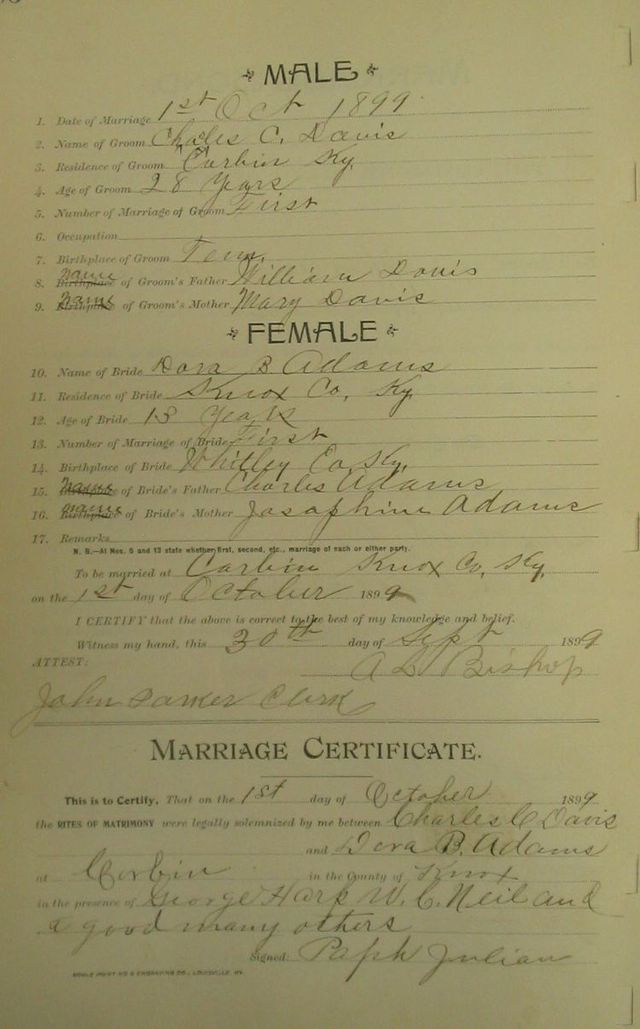 MALE
1. Date of Marriage 1st Oct 1899
2. Name of Groom Chales C. Davis
3. Residence of Groom Corbin Ky.
4. Age of Groom 28 Years
5. Number of Marriage of Groom First
6. Occupation
7. Birthplace of Groom Tenn.
8. Birthplace name of Groom's Father William Davis
9. Name of Groom's Mother Mary Davis
FEMALE
10. Name of Bride Dora B Adams
11. Residence of Bride Knox Co, Ky
12. Age of Bride Years
13. Number of Marriage of Bride First
14. Birthplace of Bride Whitley Co, Ky.
15. name of Bride's Father Charles Adams
16. Birthplace name of Bride's Mother Josaphine Adams
17. Remarks
N. B.—At Nos. 5 and 13 state whether first, second, etc., marriage of each or either party.
To be married at Corbin Knox Co, Ky,
on the 1st day of October 1899
I CERTIFY that the above is correct to the best of my knowledge and belief.
Witness my hand, this 30th day of Sept 1899
ATTEST: A L Bishop
John Parker Clerk
MARRIAGE CERTIFICATE.
This is to Certify, That on the 1st day of October 1899
the RITES OF MATRIMONY were legally solemnized by me between Charles C Davis
and Dora B. Adams
at Corbin in the County of Knox
in the presence of George Harp W. C. Neil and
a good many others
Signed: Julian